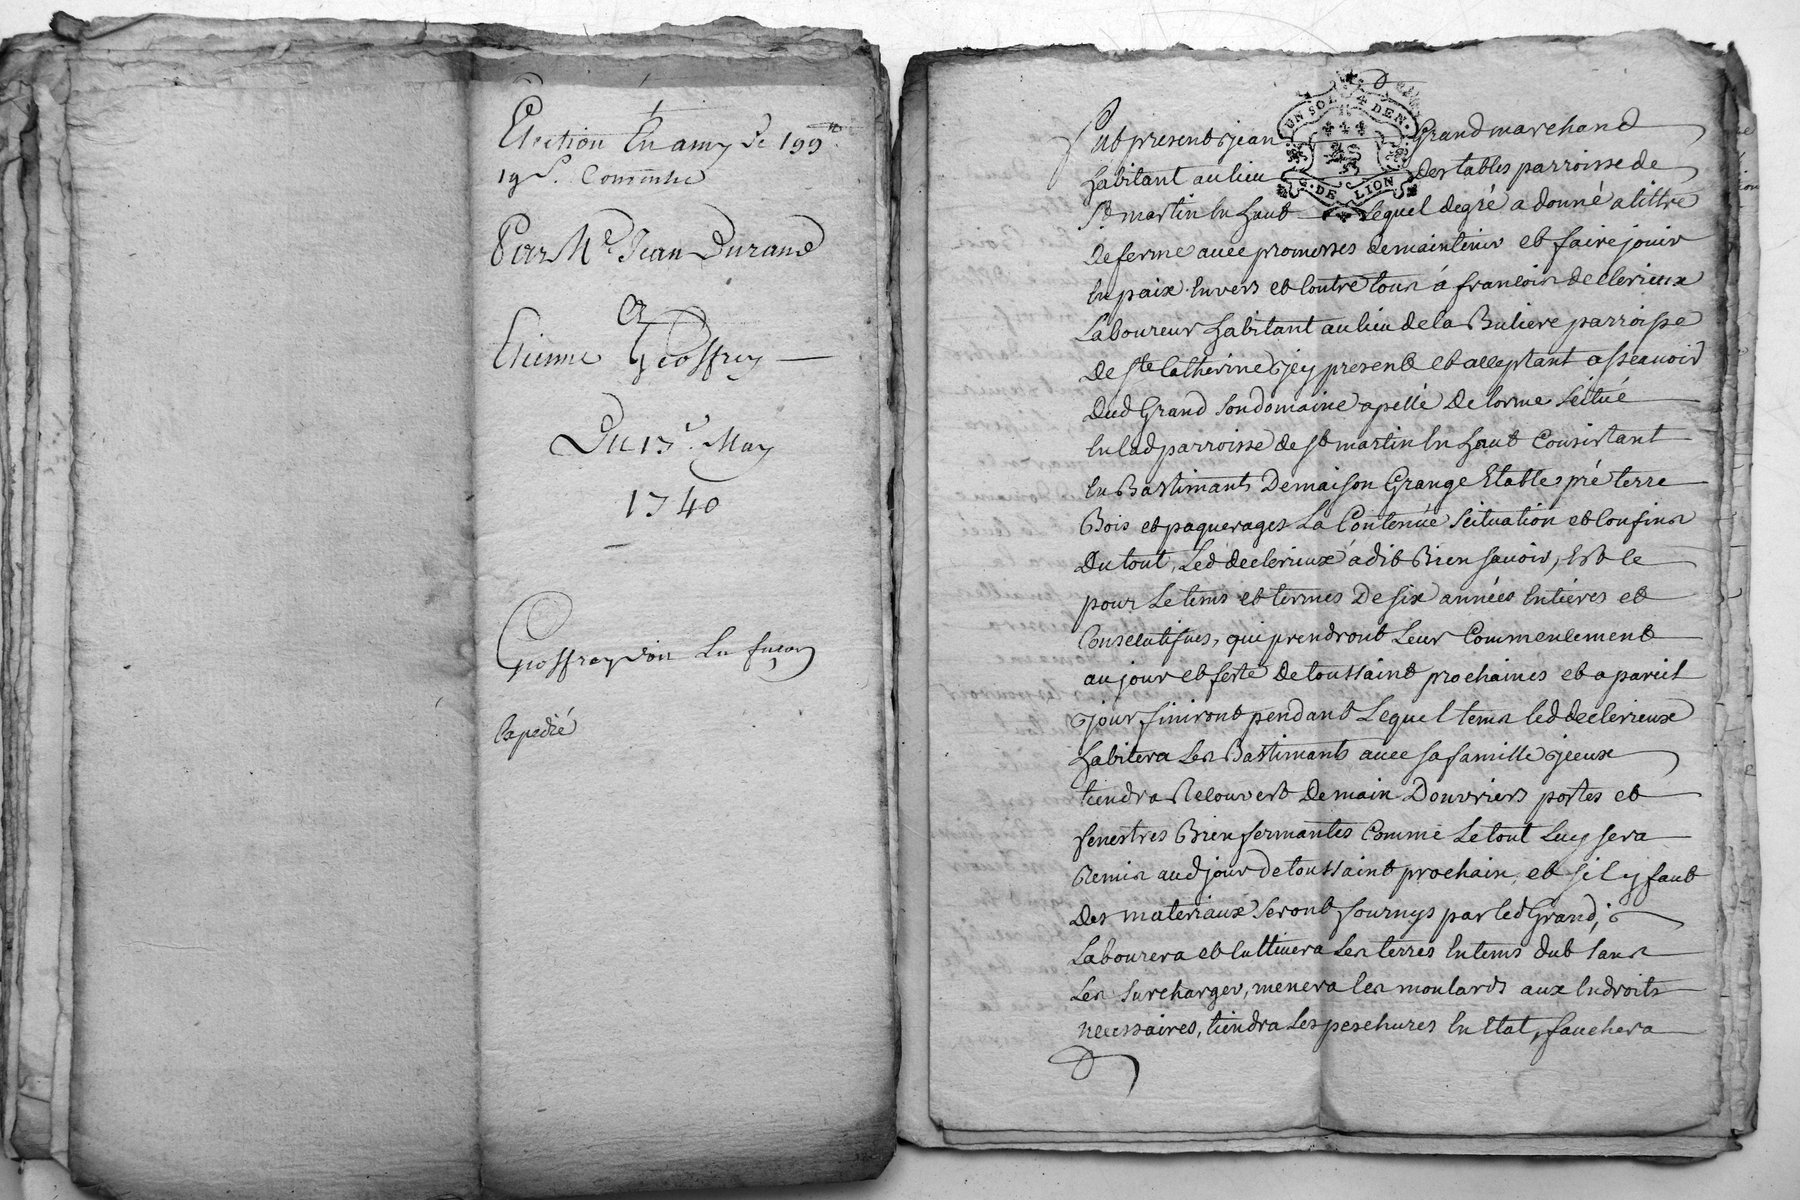 Election En amy de 199tt
19s. Consentie
Par Mre Jean Durand
a
Etienne Geoffrey
Du 13e May
1740
Geoffrey
Expedié
UN SOL 4 DEN.
G. DE LION
Fut present jean Grand marchand
habitant au lieu des tables parroisse de
St. martin en haut lequel de gré a donné a tittre
de ferme avec promesses de maintenir et faire jouir
en paix envers et contre tous á francois de clerieux
Laboureur habitant au lieu de la Buliere parroisse
de Ste Catherine jcy present et acceptant asseavoir
dud Grand son domaine apellé de lorme scitué
en lad parroisse de st martin en haut Consistant
en Bastimants de maison Grange Etables pré terre
Bois et paquerages La Contenüe scituation et confins
du tout, led declerieux a dit Bien savoir, Et ce
pour Le tems et termes de six années entiéres et
Consecutifves, qui prendront leur Commencement
au jour et feste de toussaint prochaines et a pareil
jour finiront pendant Lequel tems led declerieux
habitera les Bastimants avec sa famille jceux
tiendra Recouvert de main Douvriers portes et
fenestres Bien fermantes Comme Le tout Luy sera
Remis aud jour de toussaint prochain, et sil y faut
des materiaux seront fournys par led Grand,
Labourera et cultivera les terres en tems dub sans
les surcharger, menera les moulards aux endroits
necessaires, tiendra les peschures en Etat, fauchera